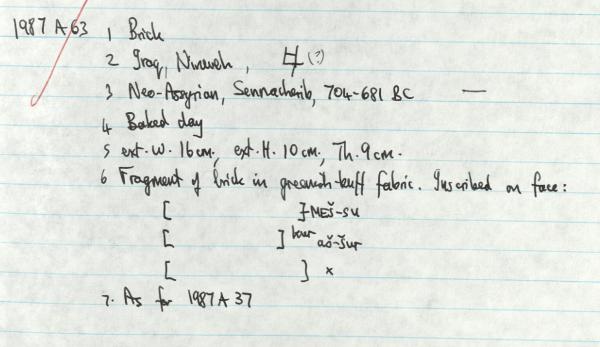 1987 A 63 1 Brick
2 Iraq, Nineveh, (?)
3 Neo-Assyrian, Sennacherib, 704-681 BC —
4 Baked clay
5 ext. W. 16cm, ext. H. 10cm, Th. 9cm.
6 Fragment of brick in greenish-buff fabric. Inscribed on face:
[ ]-MEŠ-SU
[ ] kur aš-šur
[ ] x
7. As for 1987 A 37